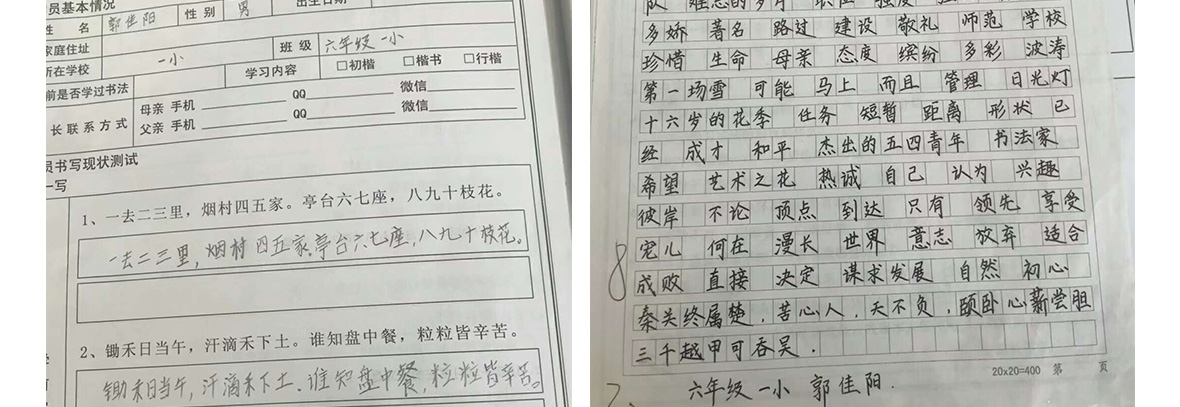 员基本情况
姓 名 郭佳阳 性 别 男 出生日期
家庭住址 班 级 六年级一小
所在学校 一小 学习内容 □初楷 □楷书 □行楷
前是否学过书法
长联系方式 母亲 手机 QQ 微信
父亲 手机 QQ 微信
员书写现状测试
一写
1、一去二三里，烟村四五家。亭台六七座，八九十枝花。
一去二三里，烟村四五家，亭台六七座，八九十枝花。
2、锄禾日当午，汗滴禾下土。谁知盘中餐，粒粒皆辛苦。
锄禾日当午，汗滴禾下土．谁知盘中餐，粒粒皆辛苦。
多娇 著名 路过 建设 敬礼 师范 学校
珍惜 生命 母亲 态度 缤纷 多彩 波涛
第一场雪 可能 马上 而且 管理 日光灯
十六岁的花季 任务 短暂 距离 形状 已
经 成才 和平 杰出的五四青年 书法家
希望 艺术之花 热诚 自己 认为 兴趣
彼岸 不论 顶点 到达 只有 领先 享受
宠儿 何在 漫长 世界 意志 放弃 适合
成败 直接 决定 谋求发展 自然 初心
8
秦关终属楚．苦心人，天不负，颐卧心薪尝胆
三千越甲可吞吴．
20×20=400 第 页
六年级 一小 郭佳阳．